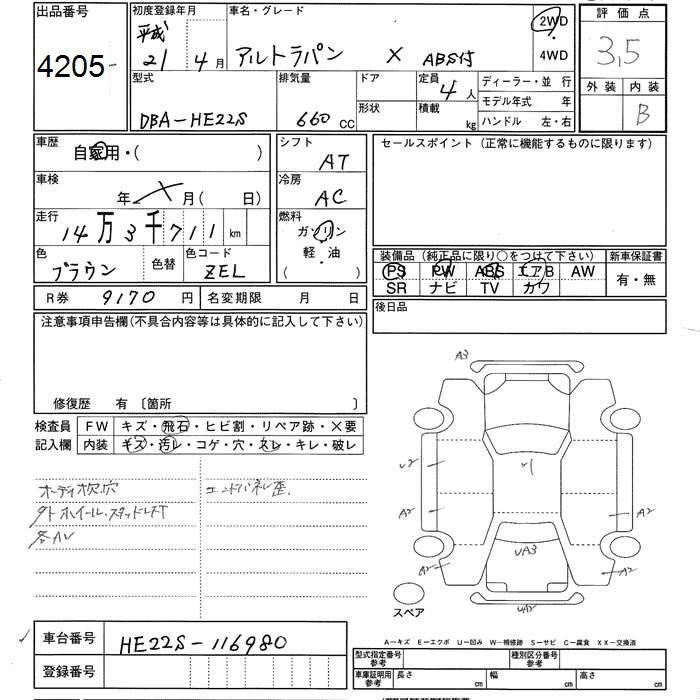 出品番号
4205
初度登録年月
平成
21 4月
車名・グレード
アルトラパン X ABS付
2WD
4WD
評価点
3,5
外装 内装
B
型式
DBA-HE22S
排気量
660 CC
ドア
形状
定員
4人
積載
kg
ディーラー・並 行
モデル年式 年
ハンドル 左・右
車歴
自家用・( )
シフト
AT
セールスポイント(正常に機能するものに限ります)
車検
年 月( 日)
冷房
AC
走行
14万3千711km
燃料
ガソリン
軽・油
( )
色
ブラウン
色替
色コード
ZEL
装備品(純正品に限り○をつけて下さい)
PS PW ABS エアB AW
SR ナビ TV カワ
新車保証書
有・無
R券 9170円
名変期限 月 日
後日品
注意事項申告欄(不具合内容等は具体的に記入して下さい)
修復歴 有 〔箇所 〕
検査員
記入欄
FW キズ・飛石・ヒビ割・リペア跡・X要
内装 キズ・汚レ・コゲ・穴・スレ・キレ・破レ
オーディオ欠.穴
外ホイール.スタッドレスT
エンドパネル歪.
A3
U2
A2
A2
UA3
A2
A2
スペア
A-キズ E-エクボ U-凹み W-補修跡 S-サビ C-腐食 XX-交換済
車台番号
HE22S-116980
登録番号
型式指定番号
参考
種別区分番号
参考
車庫証明用
参考
長さ cm
幅 cm
高さ cm